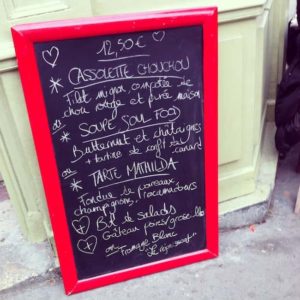 12,50 €
CASSOLETTE CHOUCHOU
Filet mignon, compotée de
chou rouge et purée maison
ou
SOUPE SOUL FOOD
Butternut et chataignes
+ tartine de confit de
canard
ou
TARTE MATHILDA
Fondue de poireaux,
champignons,
+ Bol de salades
+ Gâteau poires/
ou Fromage Blanc